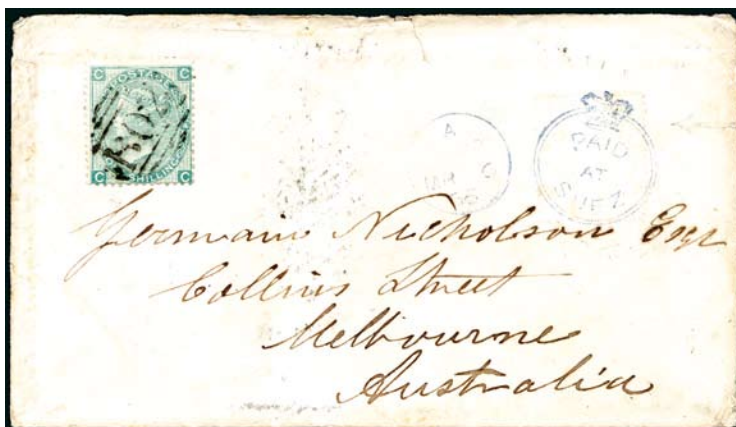 C C
POSTAGE
B02
SHILLING
C C
A
MR
6
PAID
AT
SUEZ
Germain Nicholson Esqr
Collins Street
Melbourne
Australia